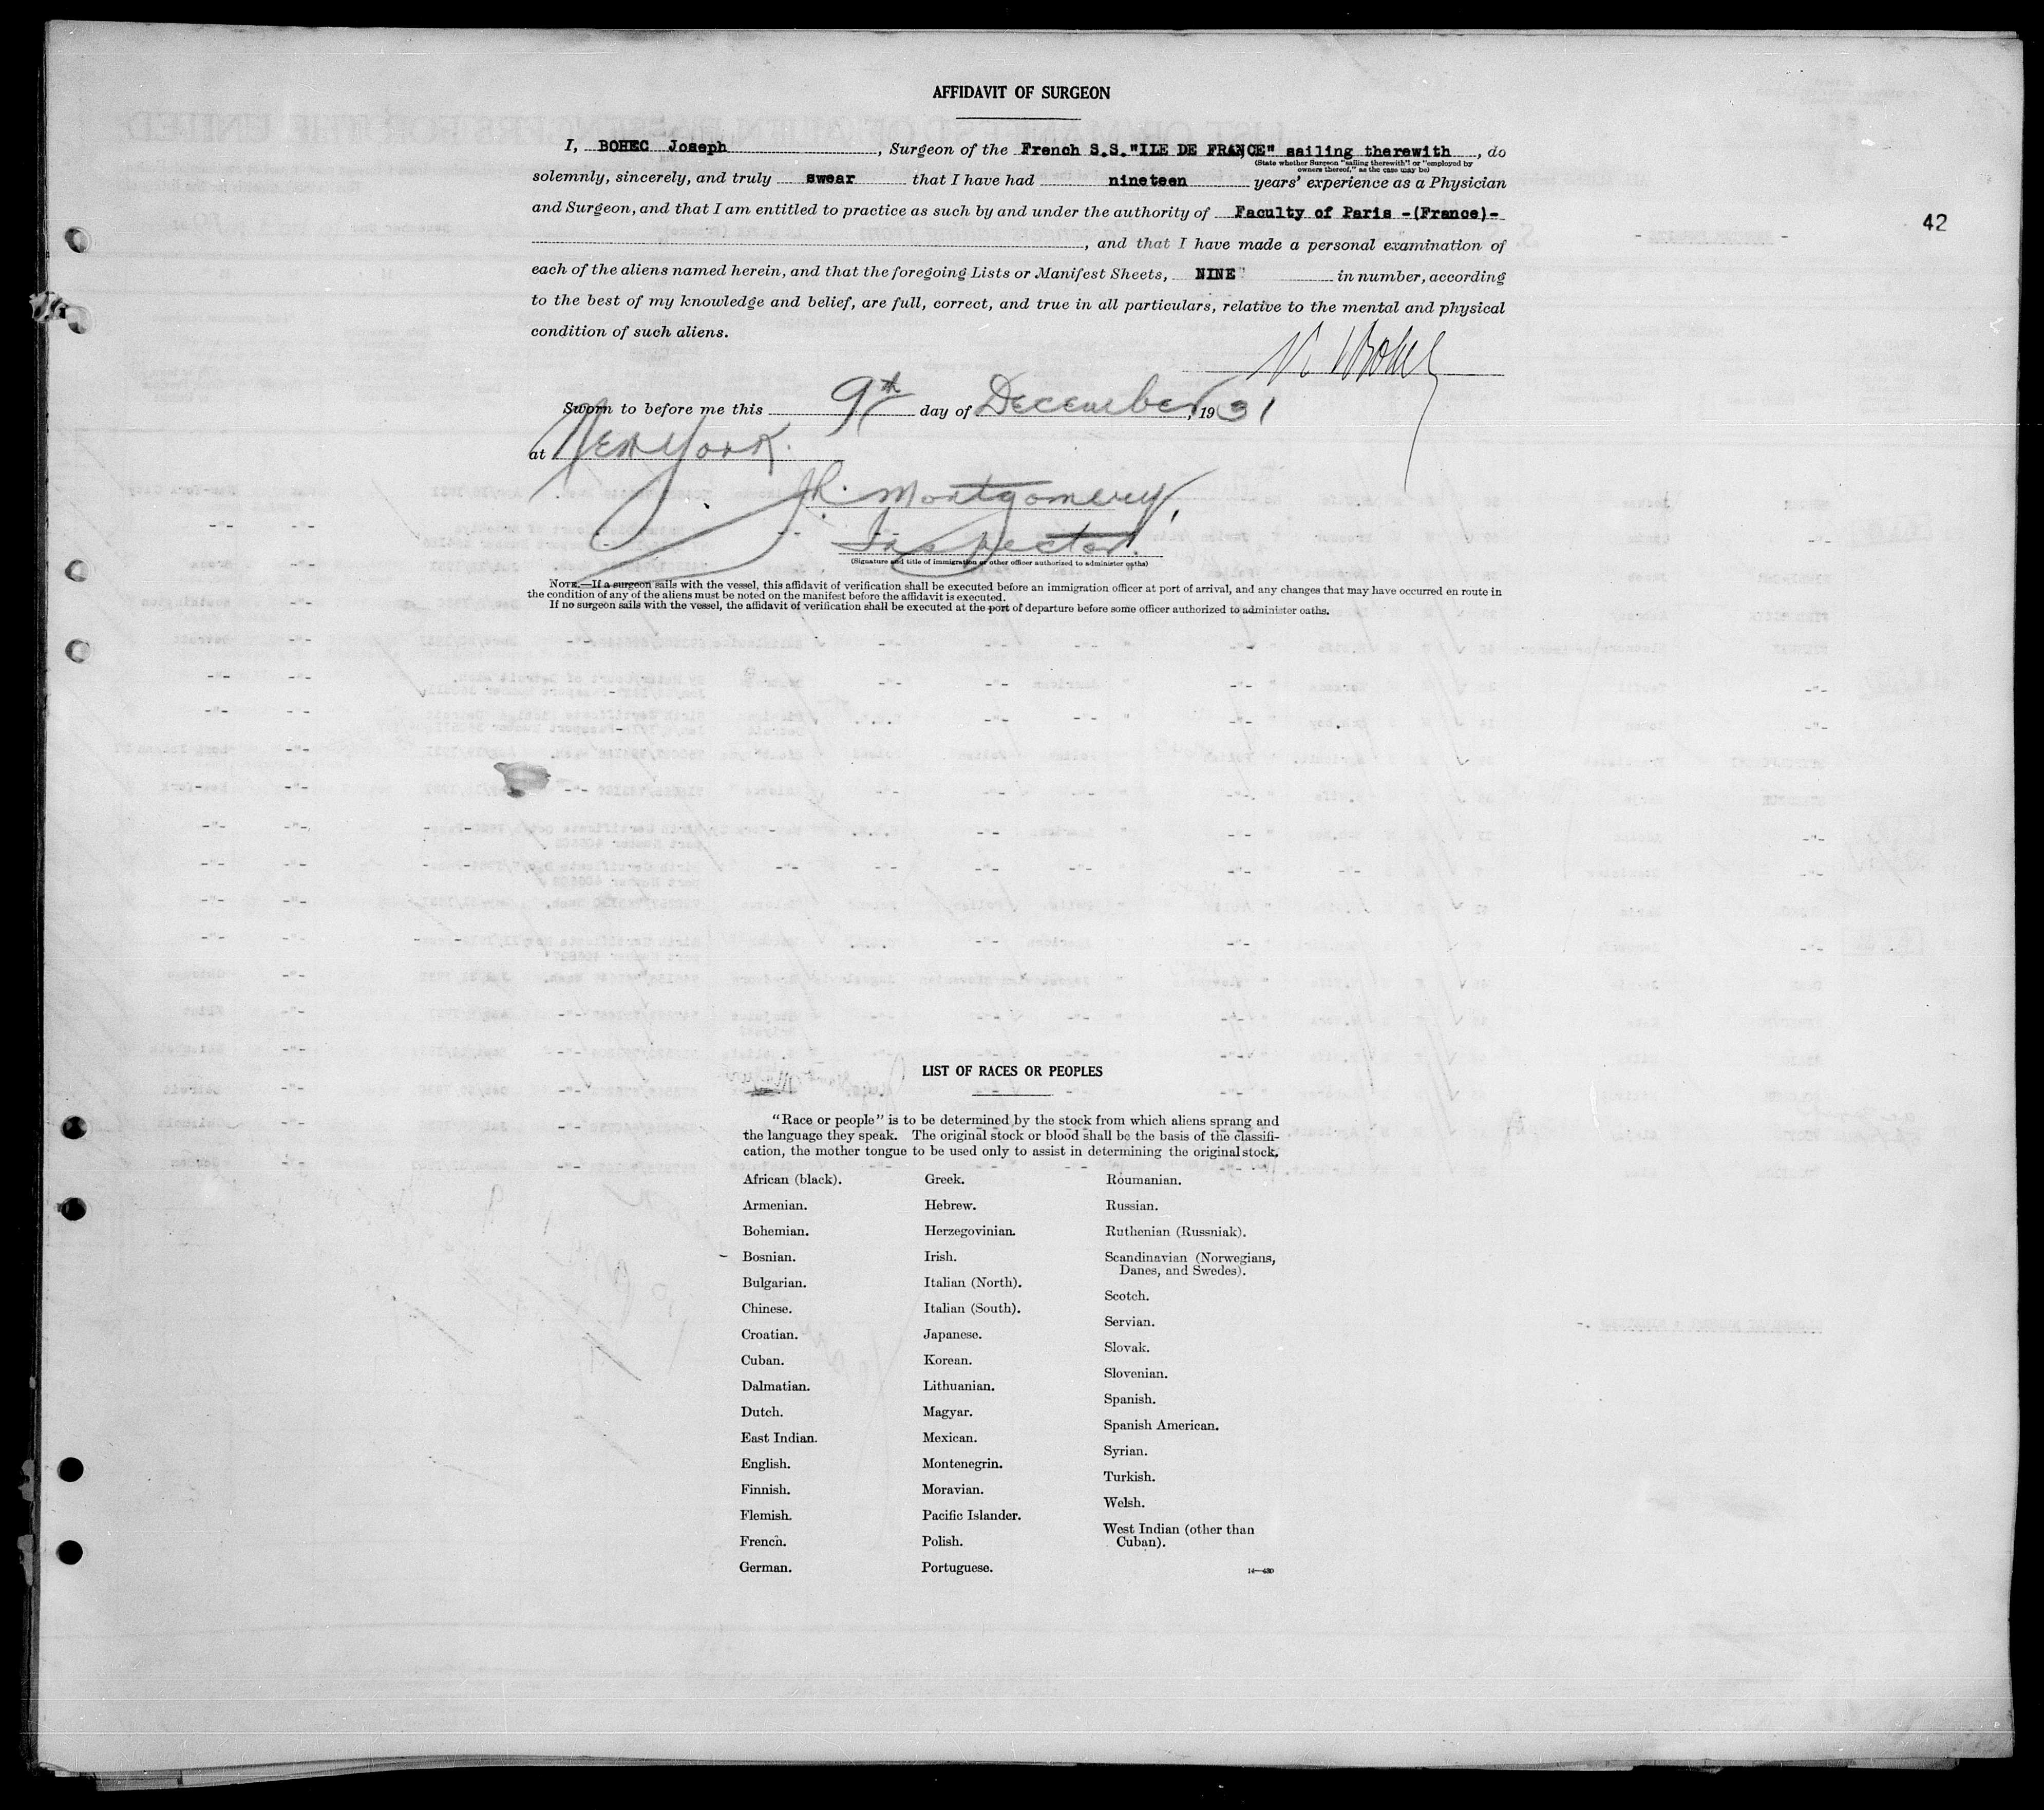 AFFIDAVIT OF SURGEON
I, BOHEC Joseph, Surgeon of the French S.S."ILE DE FRANCE" sailing therewith, do
(State whether Surgeon "sailing therewith" or "employed by
owners thereof," as the case may be)
solemnly, sincerely, and truly swear that I have had nineteen years' experience as a Physician
and Surgeon, and that I am entitled to practice as such by and under the authority of Faculty of Paris -(France)-
42
, and that I have made a personal examination of
each of the aliens named herein, and that the foregoing Lists or Manifest Sheets, NINE in number, according
to the best of my knowledge and belief, are full, correct, and true in all particulars, relative to the mental and physical
condition of such aliens.
Sworn to before me this 9th day of December, 1931
at New York.
Montgomery,
Inspector.
(Signature and title of immigration or other officer authorized to administer oaths)
NOTE.—If a surgeon sails with the vessel, this affidavit of verification shall be executed before an immigration officer at port of arrival, and any changes that may have occurred en route in
the condition of any of the aliens must be noted on the manifest before the affidavit is executed.
If no surgeon sails with the vessel, the affidavit of verification shall be executed at the port of departure before some officer authorized to administer oaths.
LIST OF RACES OR PEOPLES
"Race or people" is to be determined by the stock from which aliens sprang and
the language they speak. The original stock or blood shall be the basis of the classifi-
cation, the mother tongue to be used only to assist in determining the original stock.
African (black).
Armenian.
Bohemian.
Bosnian.
Bulgarian.
Chinese.
Croatian.
Cuban.
Dalmatian.
Dutch.
East Indian.
English.
Finnish.
Flemish.
French.
German.
Greek.
Hebrew.
Herzegovinian.
Irish.
Italian (North).
Italian (South).
Japanese.
Korean.
Lithuanian.
Magyar.
Mexican.
Montenegrin.
Moravian.
Pacific Islander.
Polish.
Portuguese.
Roumanian.
Russian.
Ruthenian (Russniak).
Scandinavian (Norwegians,
Danes, and Swedes).
Scotch.
Servian.
Slovak.
Slovenian.
Spanish.
Spanish American.
Syrian.
Turkish.
Welsh.
West Indian (other than
Cuban).
14—430